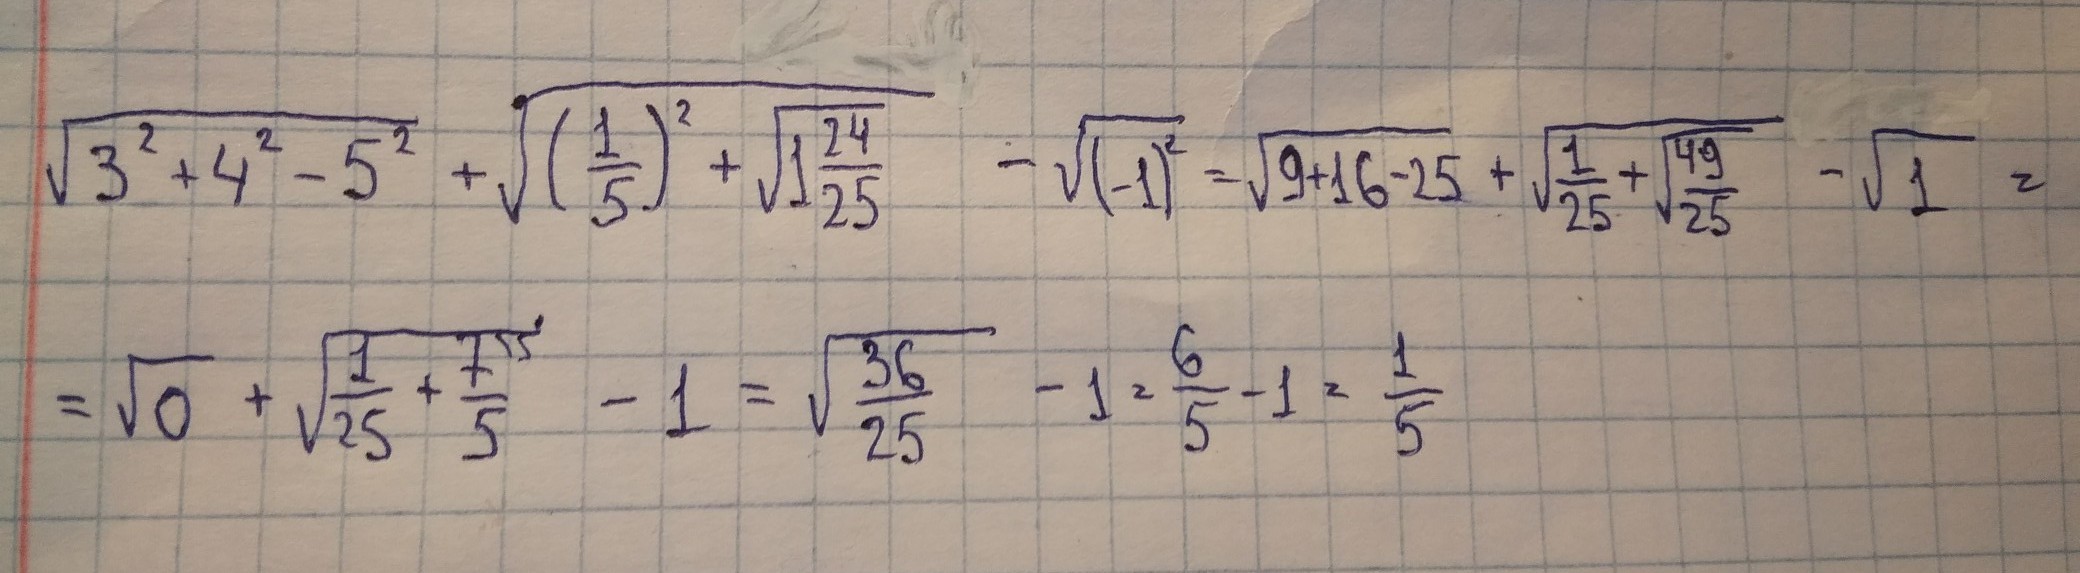 √(3² + 4² - 5²) + √((1/5)² + √(1 24/25)) - √((-1)²) = √(9+16-25) + √(1/25 + √(49/25)) - √1 =
= √0 + √(1/25 + 7⁽⁵/5) - 1 = √(36/25) - 1 = 6/5 - 1 = 1/5